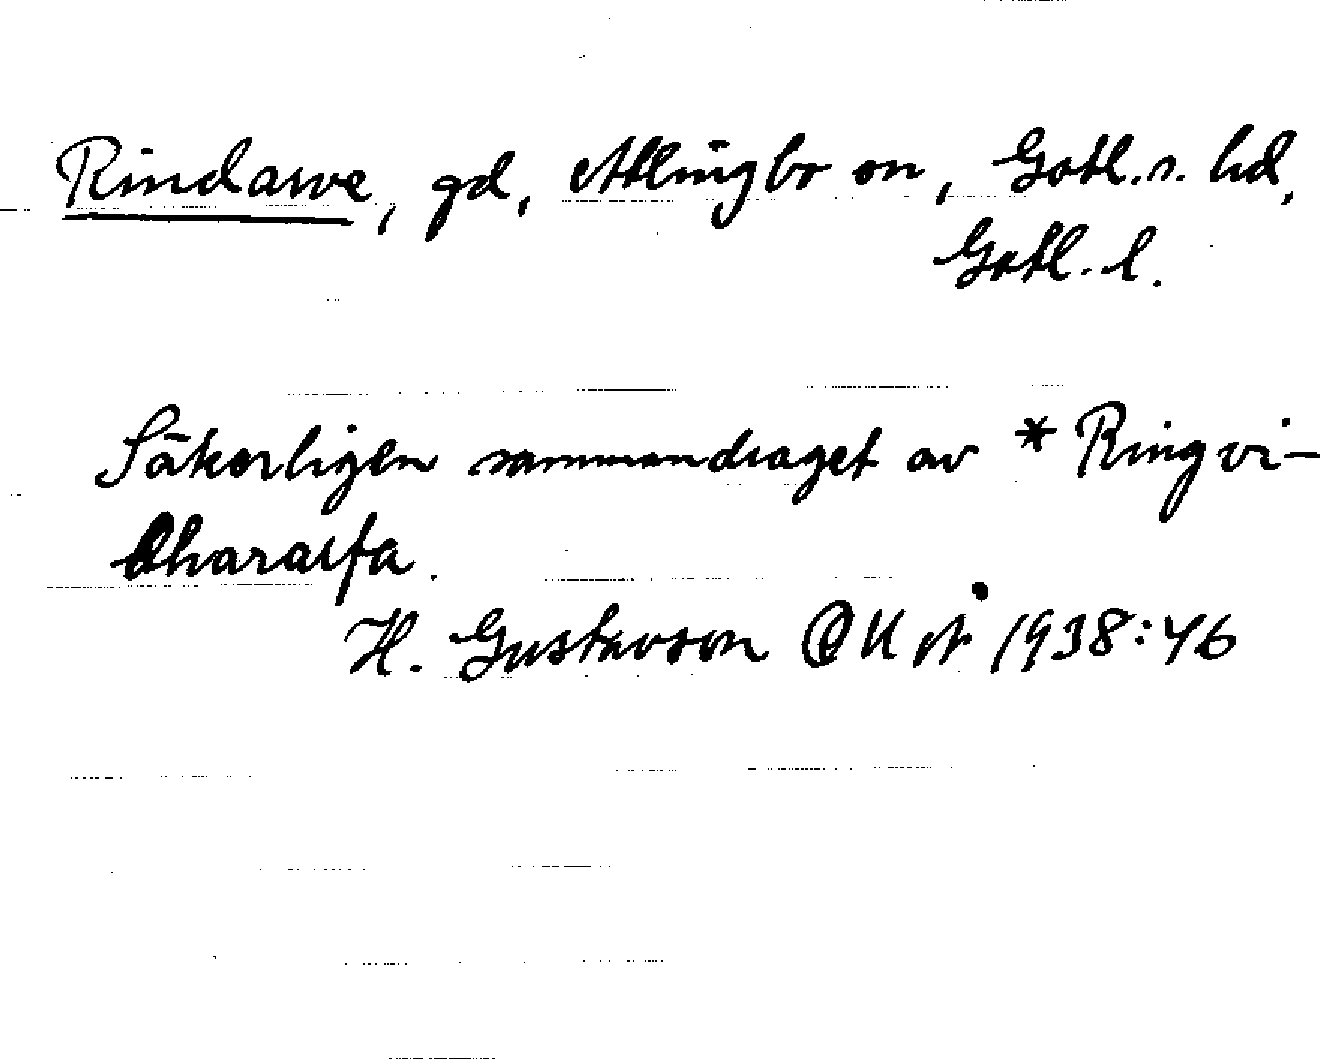 Rindarve, gd, Atlingbo sn, Gotl. s. hd,
Gotl. l.
Säkerligen sammandraget av *Ringvi-
dhararfa.
H. Gustavson OUÅ 1938:46